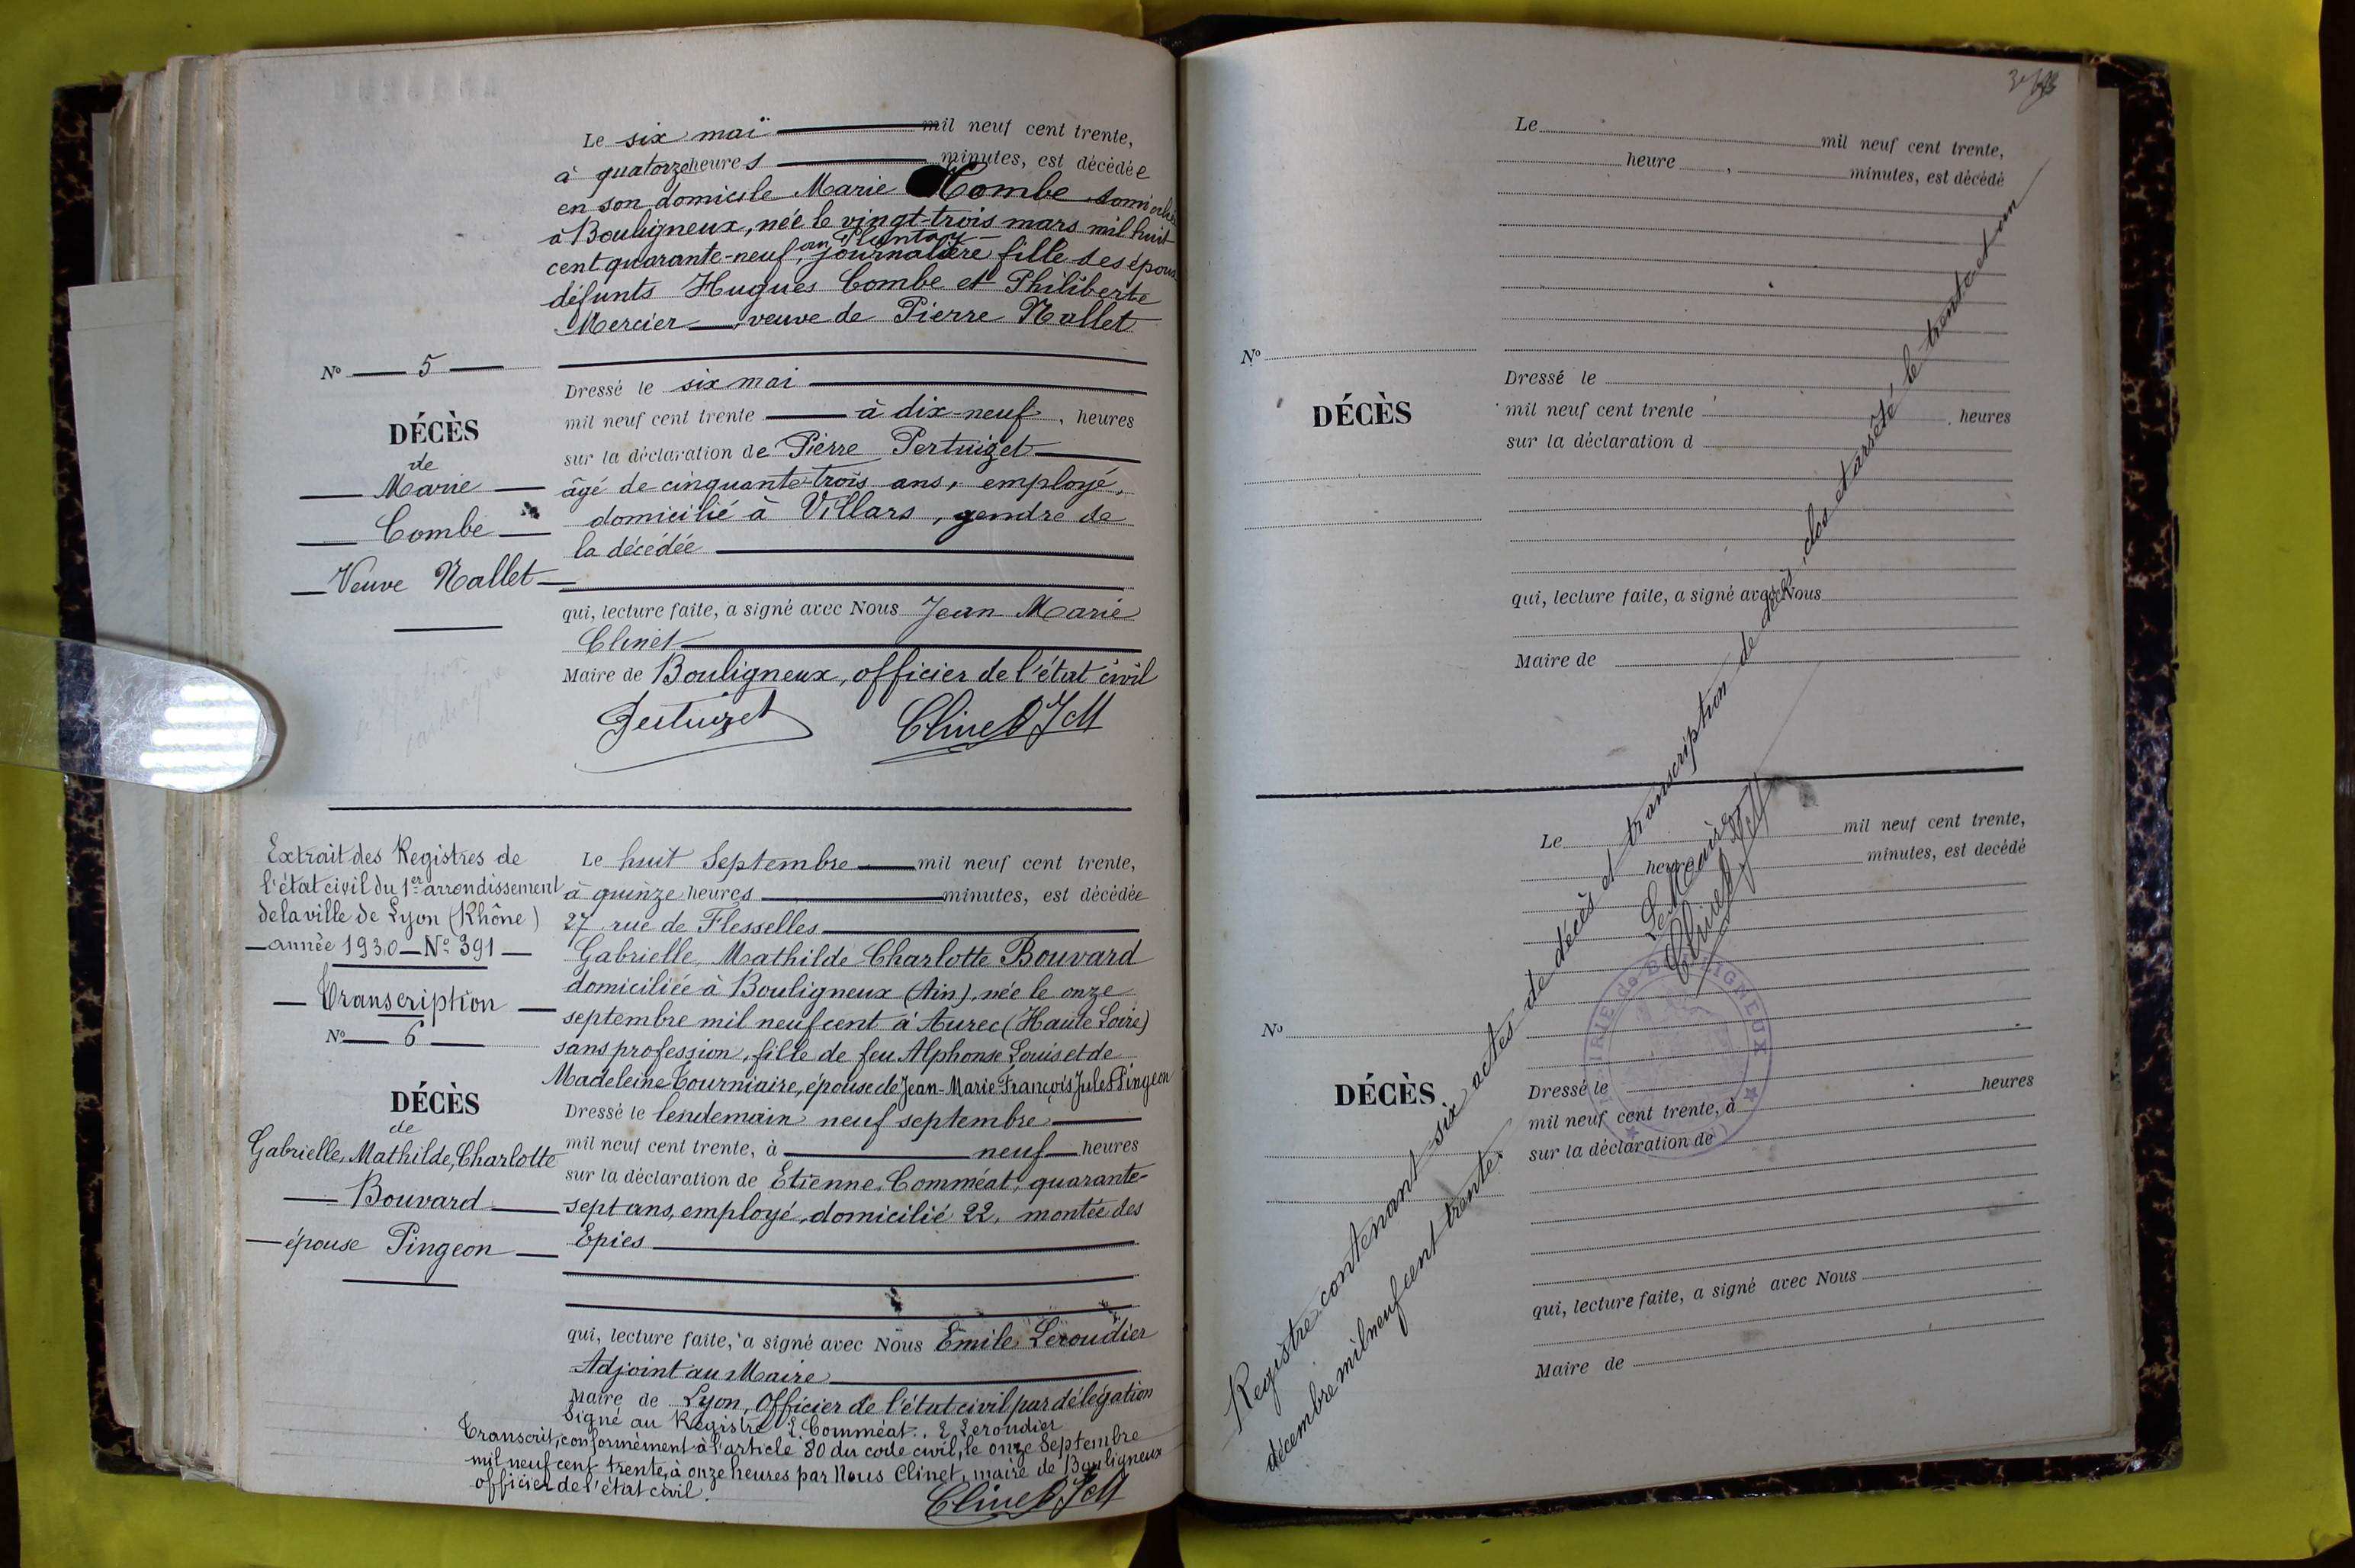 Le six mai mil neuf cent trente,
à quatorze heures minutes, est décédée
en son domicile Marie Combe domiciliée
à Bouligneux, née le vingt-trois mars mil huit
au Plantay
cent quarante-neuf, journalière fille des époux
défunts Hugues Combe et Philiberte
Mercier veuve de Pierre Nallet
N° 5
DÉCÈS
de
Marie
Combe
Veuve Nallet
Dressé le six mai
mil neuf cent trente à dix-neuf, heures
sur la déclaration de Pierre Pertuizet
âgé de cinquante-trois ans, employé,
domicilié à Villars, gendre de
la décédée
qui, lecture faite, a signé avec Nous Jean Marie
Clinet
Maire de Bouligneux, officier de l'état civil
Pertuizet Clinet JM
Extrait des Registres de
l'état civil du 1er arrondissement
de la ville de Lyon (Rhône)
année 1930 - N° 391
Transcription
N° 6
DÉCÈS
de
Gabrielle, Mathilde, Charlotte
Bouvard
épouse Pingeon
Le huit Septembre mil neuf cent trente,
à quinze heures minutes, est décédée
27 rue de Flesselles
Gabrielle, Mathilde Charlotte Bouvard
domiciliée à Bouligneux (Ain), née le onze
septembre mil neuf cent à Aurec (Haute Loire)
sans profession, fille de feu Alphonse Louis et de
Madeleine Tourniaire, épouse de Jean-Marie François Jules Pingeon
Dressé le lendemain neuf septembre
mil neuf cent trente, à neuf heures
sur la déclaration de Etienne Comméat, quarante-
sept ans, employé, domicilié 22, montée des
Epies
qui, lecture faite, a signé avec Nous Emile Leroudier
Adjoint au Maire
Maire de Lyon, Officier de l'état civil par délégation
Signé au Registre E. Comméat. E. Leroudier
Transcrit, conformément à l'article 80 du code civil, le onze Septembre
mil neuf cent trente, à onze heures par Nous Clinet, maire de Bouligneux
officier de l'état civil.
Clinet JM
Le mil neuf cent trente,
heure , minutes, est décédé
N°
DÉCÈS
Dressé le
mil neuf cent trente , heures
sur la déclaration d
qui, lecture faite, a signé avec Nous
Maire de
Le mil neuf cent trente,
heure minutes, est decédé
N°
DÉCÈS
Dressé le
mil neuf cent trente, à heures
sur la déclaration de
qui, lecture faite, a signé avec Nous
Maire de
Registre contenant six actes de décès et transcription de décès, clos et arrêté le trente et un
décembre mil neuf cent trente.
Le Maire
Clinet JM
MAIRIE de BOULIGNEUX